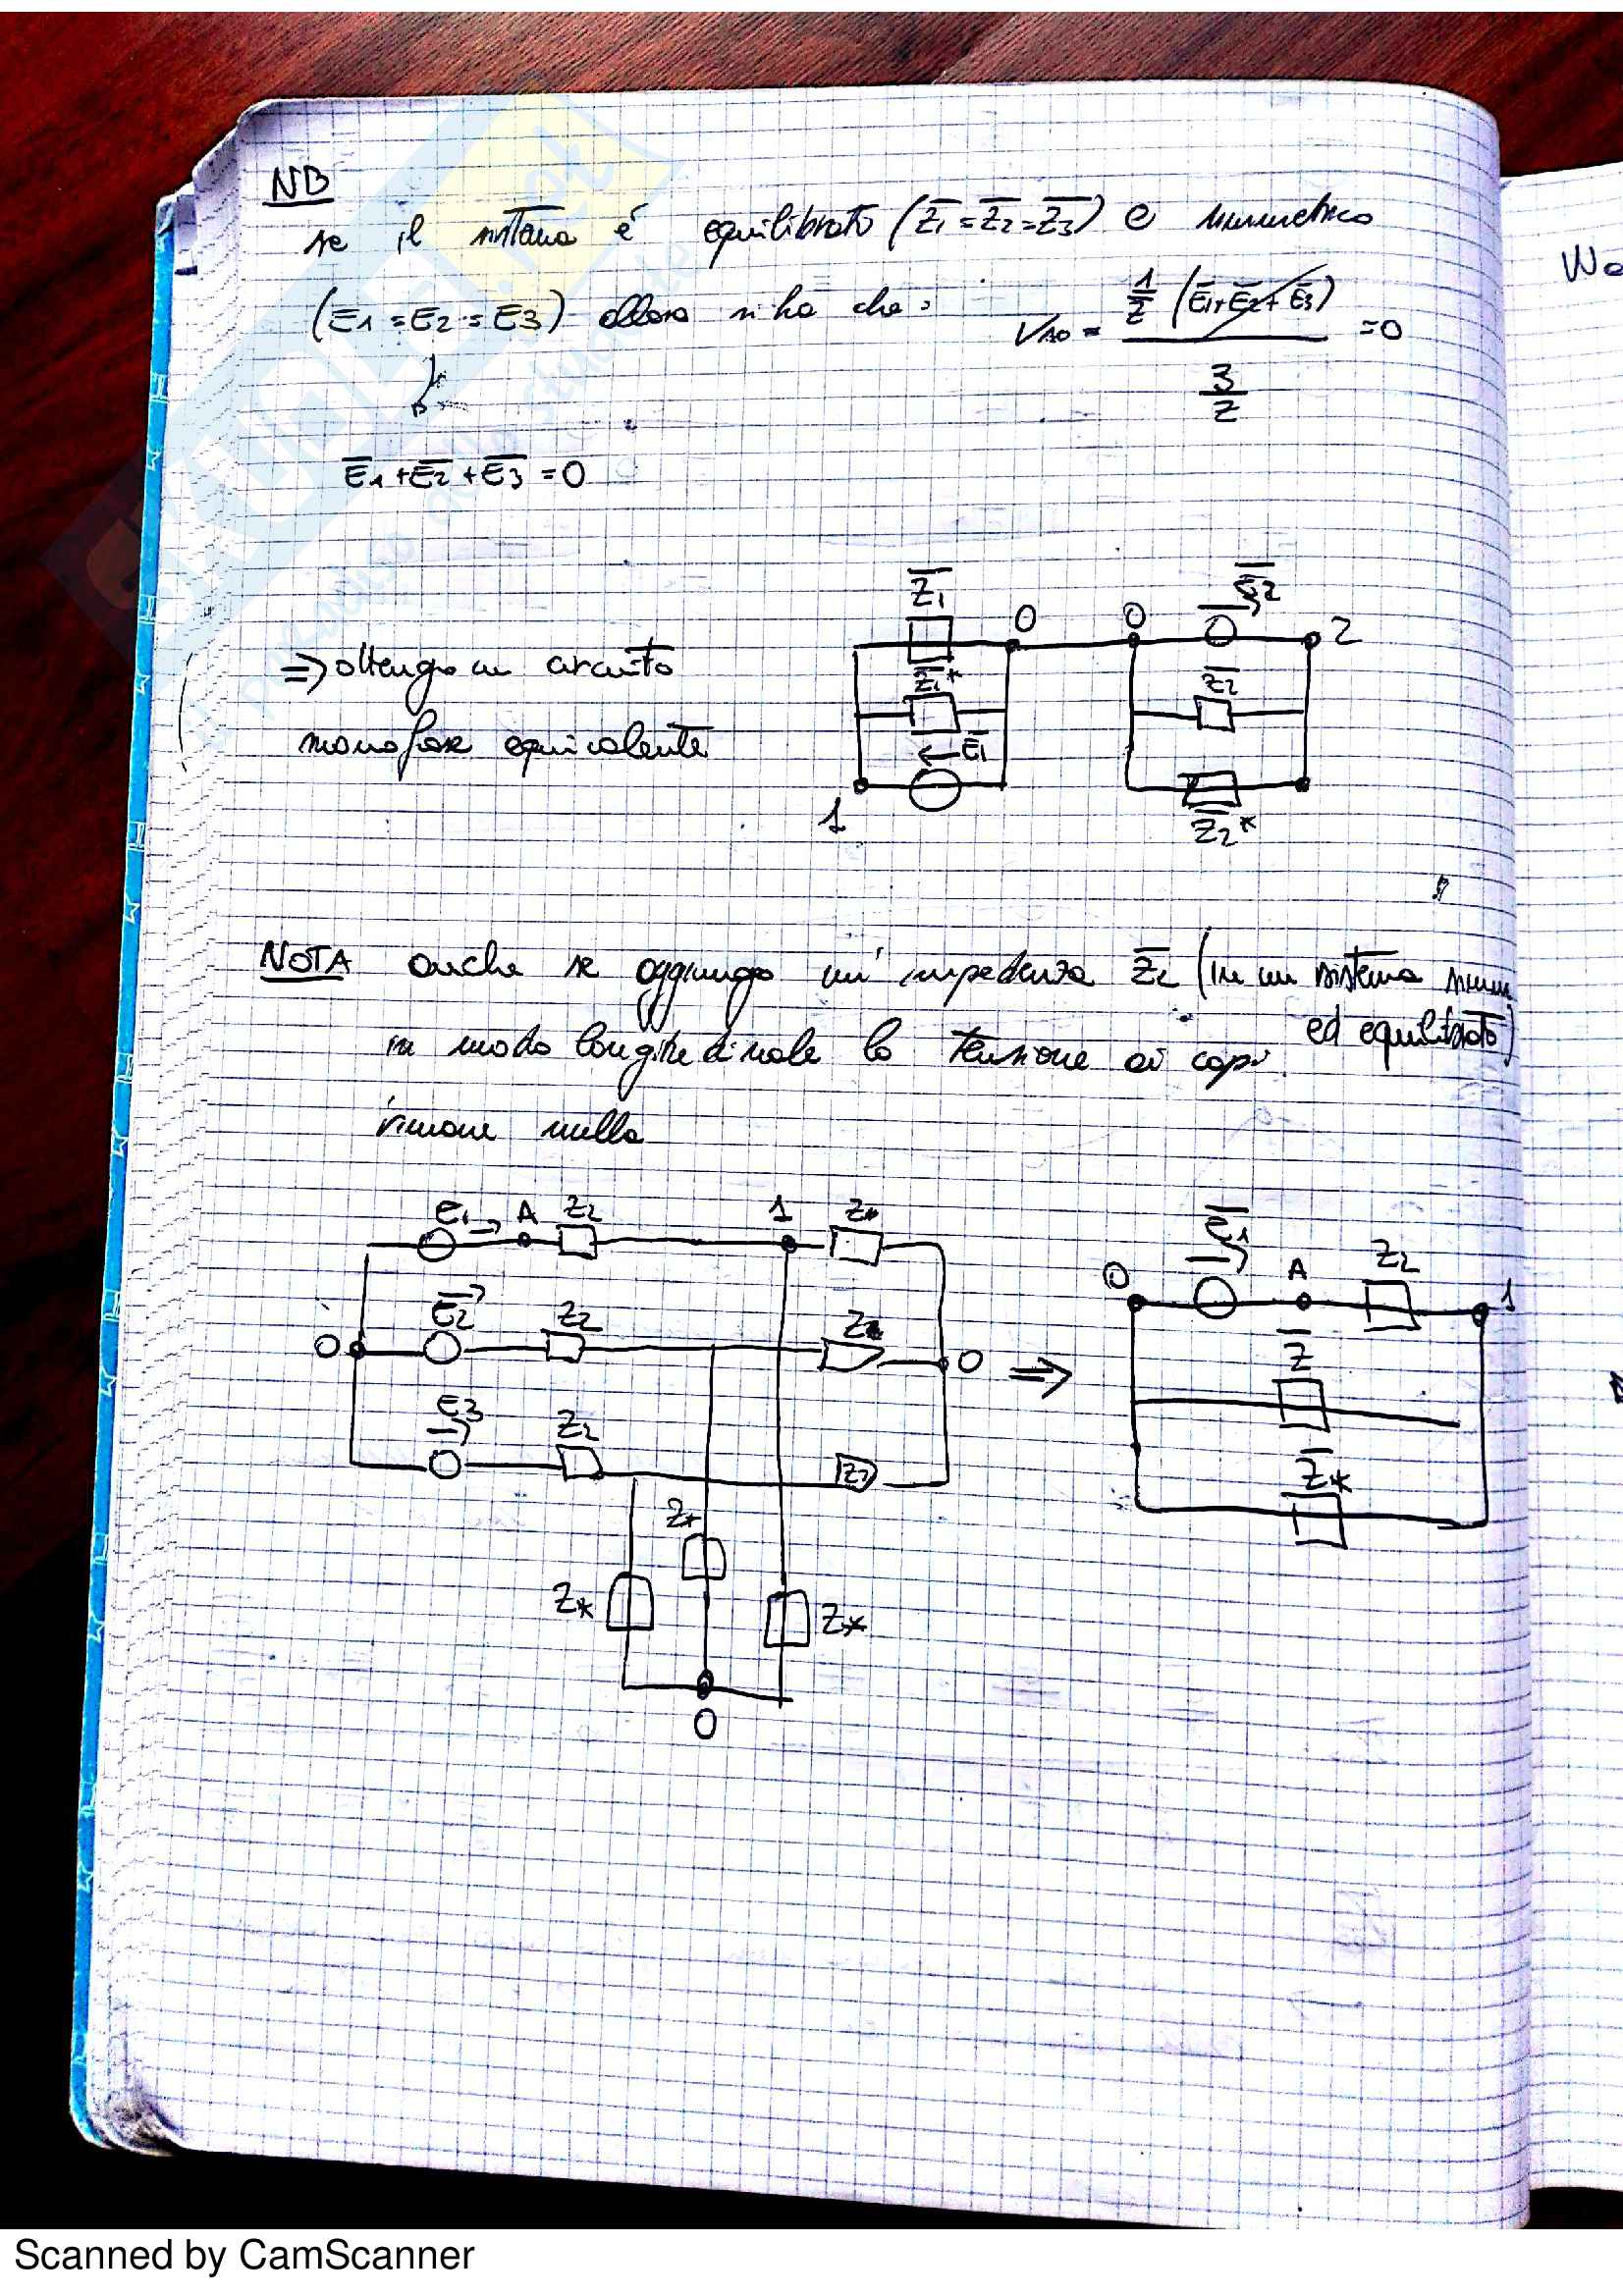 NB
se il sistema é equilibrato (Z̅1 = Z̅2 = Z̅3) e simmetrico
(E1 = E2 = E3) allora si ha che: VAO = 1/Z (E̅1 + E̅2 + E̅3) / 3/Z = 0
E̅1 + E̅2 + E̅3 = 0
Z̅1 0 0 E̅2 2
Z̅1* Z̅2
E̅1
1 Z̅2*
=> ottengo un circuito
monofase equivalente
NOTA anche se aggiungo un' impedenza Z̅L (in un sistema simm
ed equilibrato)
in modo longitudinale la tensione ai capi
rimane nulla
e1 A Z2 1 Z*
E̅2 Z2
0 0 =>
E3 Z2 Z
Z*
Z* Z*
0
e̅1
0 A Z2 1
Z̅
Z̅*
Scanned by CamScanner